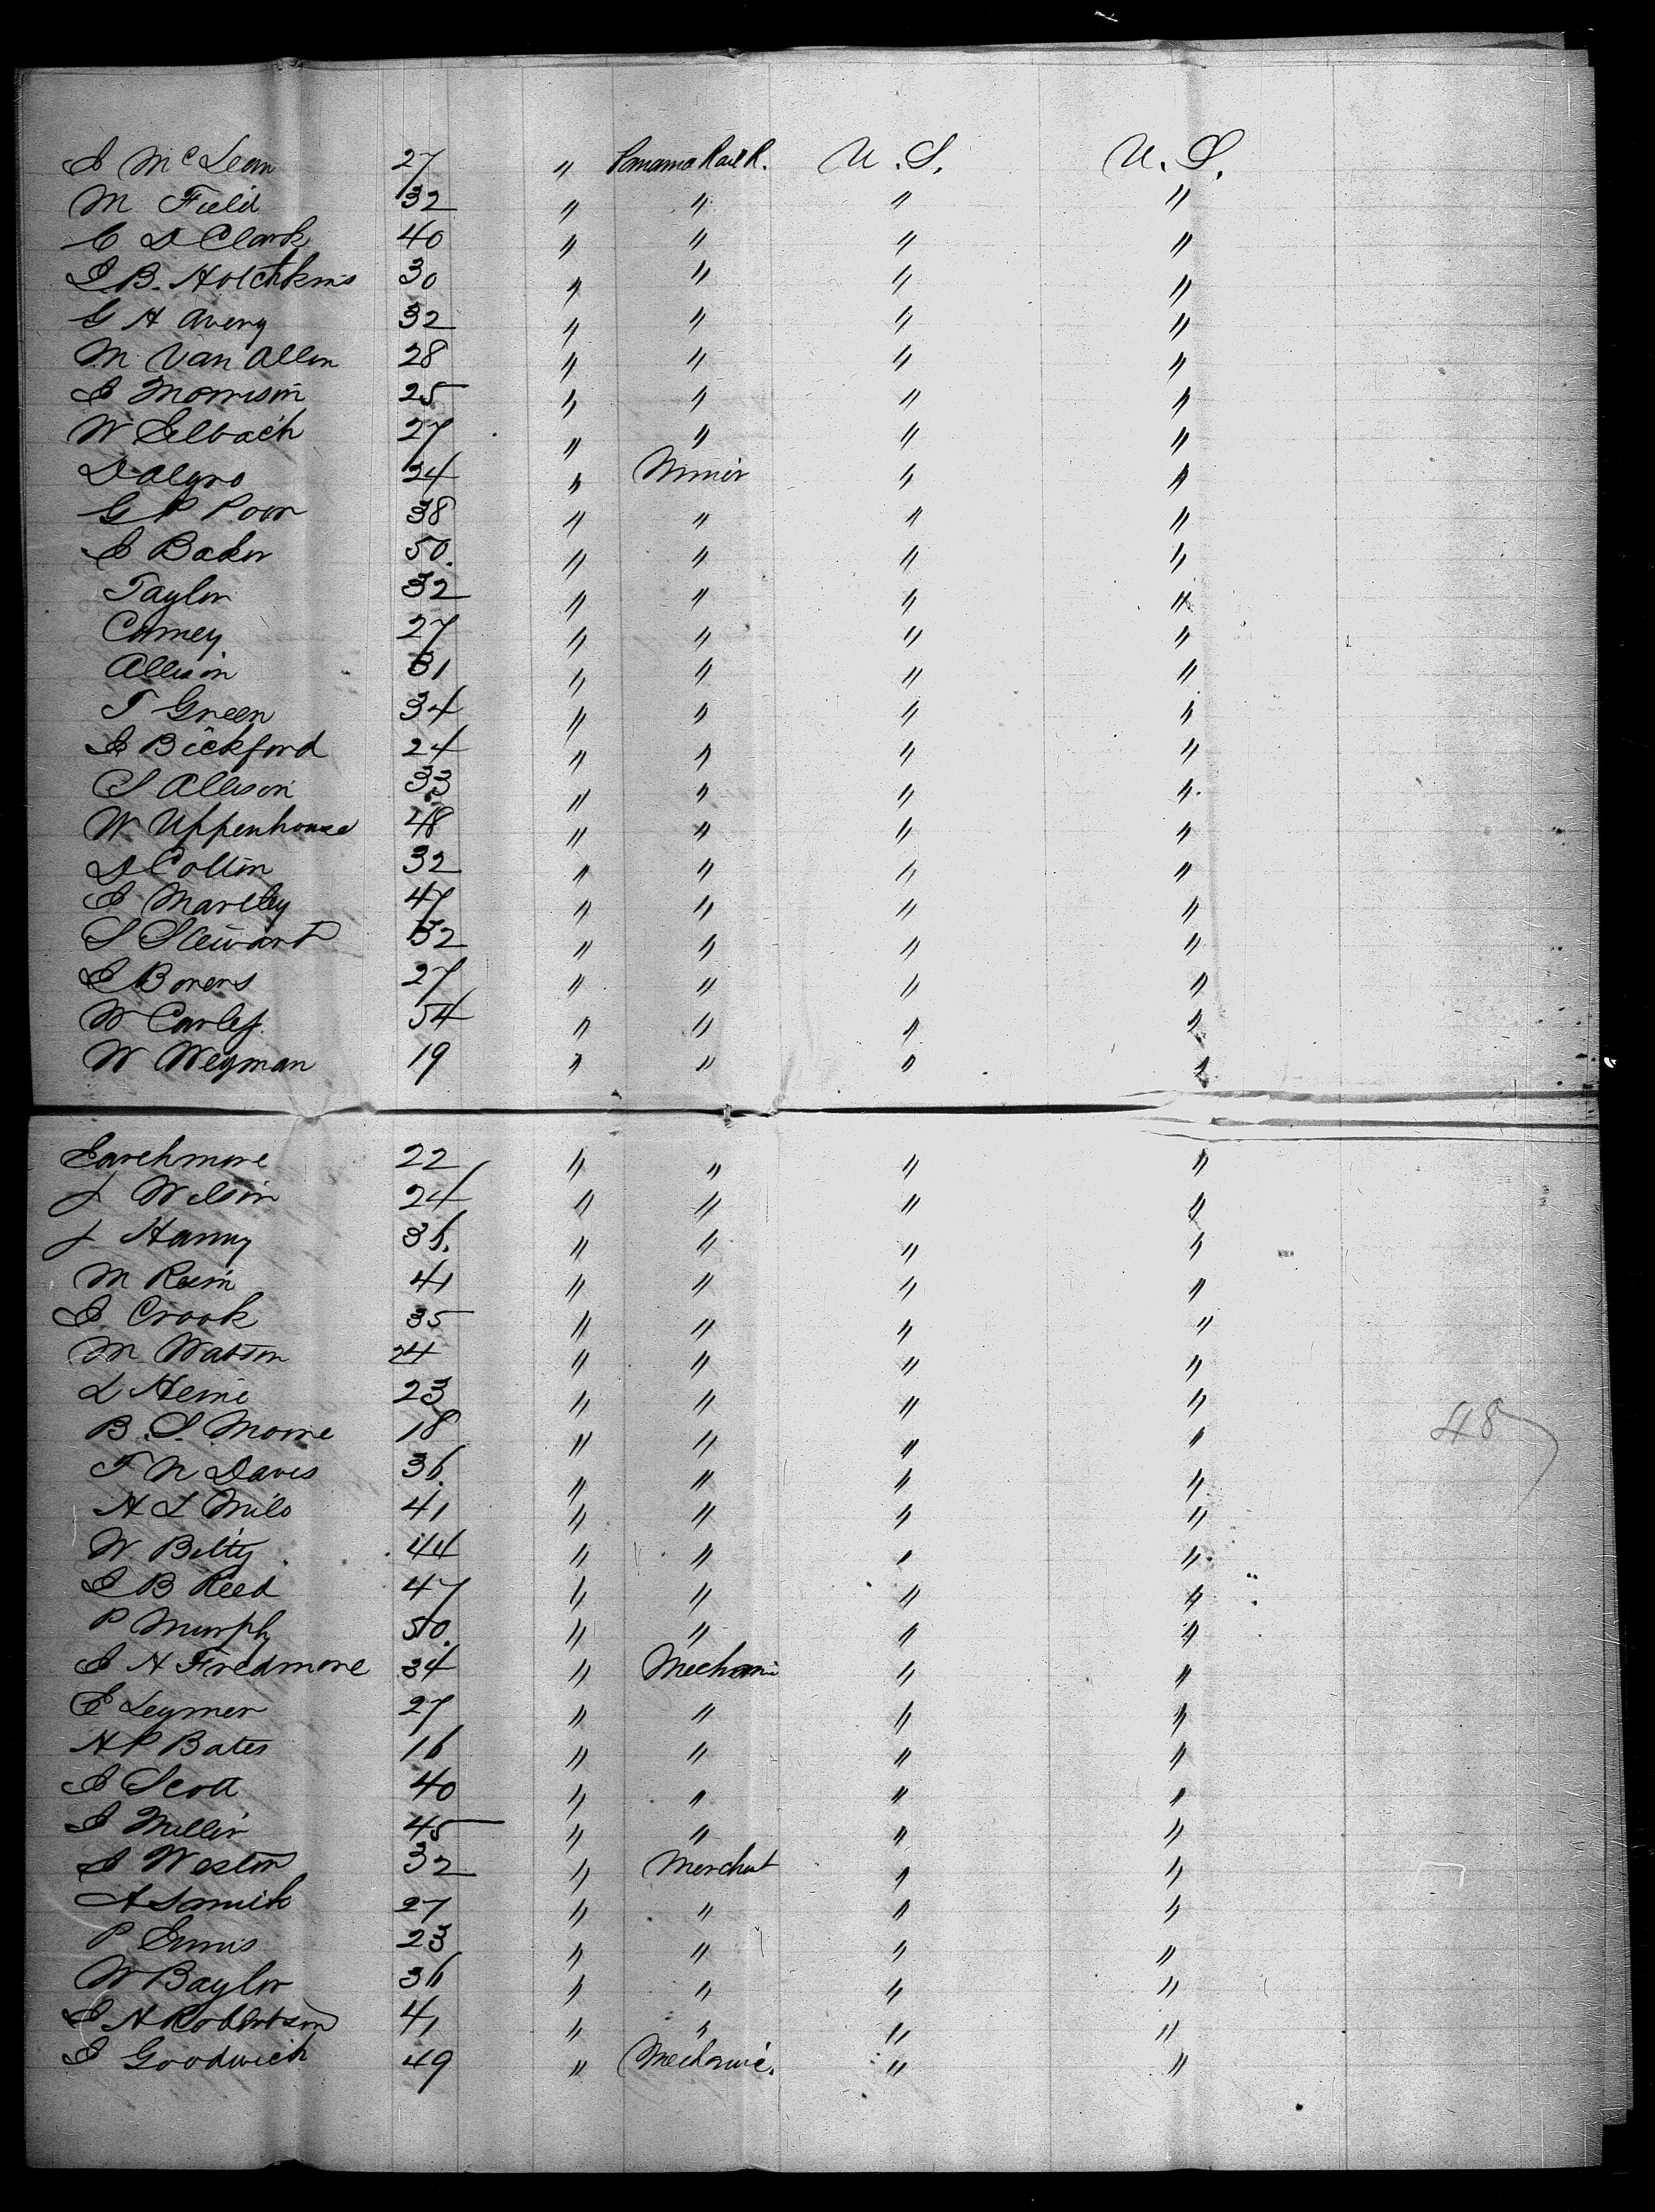 J McLean 27 " Panama Rail R. U.S. U.S.
M Field 32 " " " "
C D Clark 40 " " " "
J.B. Hotchkins 30 " " " "
G H Avery 32 " " " "
M Van Allen 28 " " " "
J Morrison 25 " " " "
W Elbach 27 " " " "
24 " Miner " "
G P Poor 38 " " " "
J Baker 50. " " " "
Taylor 32 " " " "
27 " " " "
Allison 31 " " " "
T Green 34 " " " "
J Bickford 24 " " " "
S Allison 33 " " " "
W Uppenhouse 48 " " " "
D Colton 32 " " " "
J 47 " " " "
S Stewart 32 " " " "
J 27 " " " "
W 54 " " " "
W Weyman 19 " " " "
22 " " " "
J Wilson 24 " " " "
J Hanny 36. " " " "
M 41 " " " "
J Crook 35 " " " "
M Watson 24 " " " "
L 23 " " " "
B.S. Moore 18 " " " "
T N Davis 36. " " " "
H L 41 " " " "
W Bitty 44 " " " "
J B Reed 47 " " " "
P Murphy 50. " " " "
J H Fredmore 34 " Mechani " "
E Leymer 27 " " " "
H P Bates 16 " " " "
J Scott 40 " " " "
J Miller 45 " " " "
J Weston 32 " Merchat " "
A 27 " " " "
P Ennis 23 " " " "
W Baylor 36 " " " "
J H Robertson 41 " " " "
J Goodwich 49 " Mechanic. " "
48